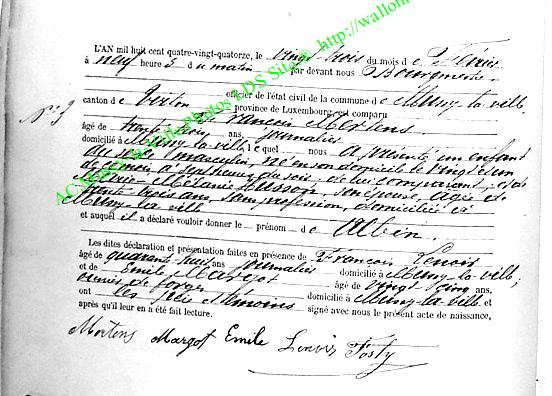 L'AN mil huit cent quatre-vingt-quatorze, le vingt trois du mois de Février
à neuf heures du matin par devant nous Bourgmestre
officier de l'état civil de la commune de Mussy-la-ville,
canton de Virton province de Luxembourg, est comparu
François Mertens
âgé de trente ans, journalier
domicilié à Mussy-la-ville, lequel nous a présenté un enfant
du sexe masculin, né en son domicile le vingt et un
de ce mois à heures du soir, de lui comparant, et de
Marie Mélanie Husson, son épouse, âgée de
trente trois ans, sans profession, domiciliée à
Mussy-la-ville
et auquel il a déclaré vouloir donner le prénom de Albin.
Les dites déclaration et présentation faites en présence de François Lenoir
âgé de quarante-huit ans journalier domicilié à Mussy-la-ville,
et de Emile Margot âgé de vingt cinq ans,
ouvrier de forges domicilié à Mussy-la-ville et
ont les père et témoins signé avec nous le présent acte de naissance,
après qu'il leur en a été fait lecture.
Mertens Margot Emile Lenoir Fosty